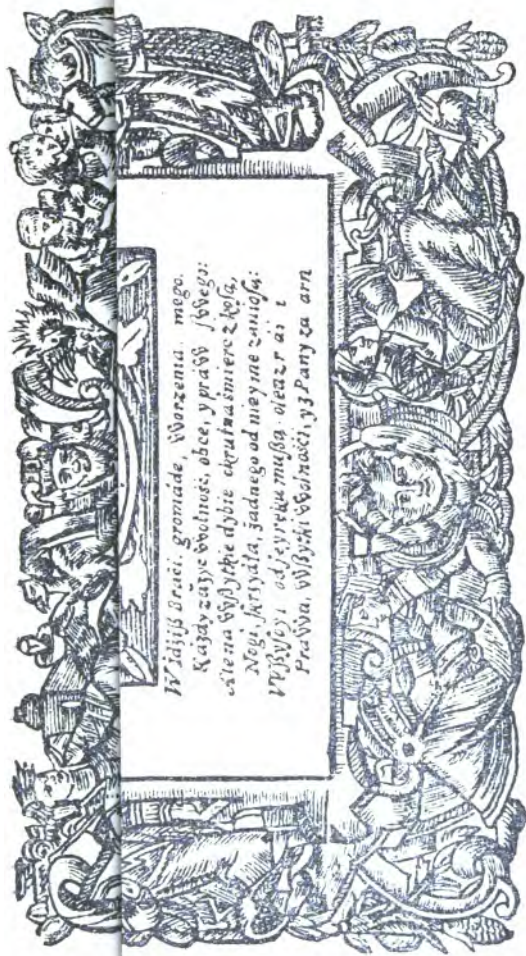 Widziß Braci gromadę Worzenia mego.
Każdy zażyć Wolność, obce, y praw ſWego:
Ale na Wßytkie dybie okrutna śmierć z koſą,
Nogi, ſkrzydła, żadnego od niey nie zanioſą:
Wßyſcy odjey ręku mußą
PraWa, Wßyſtki Wolności, y z Pany za